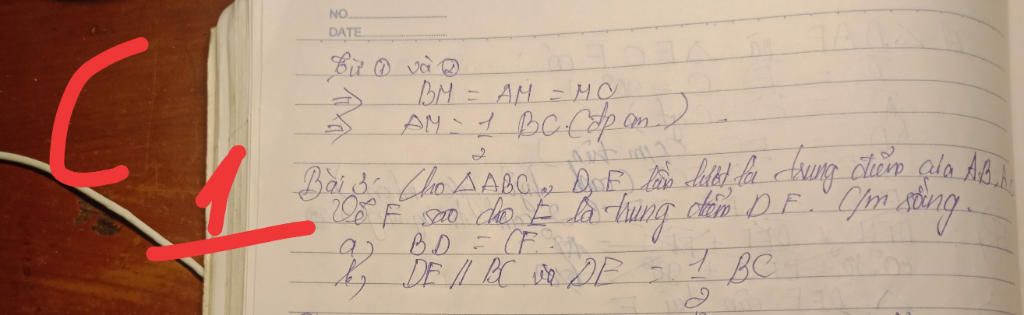 NO.
DATE
Từ ① và ②
⇒ BM = AM = MC
⇒ AM = 1/2 BC (đpcm)
Bài 3: Cho △ABC, D, E lần lượt là trung điểm của AB,
Vẽ F sao cho E là trung điểm DF. C/m rằng.
a, BD = CF.
b, DE // BC và DE = 1/2 BC
C
1